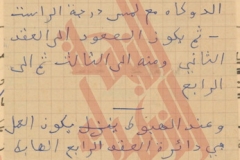 الدوكاه مع لمس درجة الراست
- ثم يكون الصعود الى العقد
الثاني ومنه الى الثالث ثم الى
الرابع
وعند الهبوط ينزل يكون العمل
في دائرة العقد الرابع الهابط